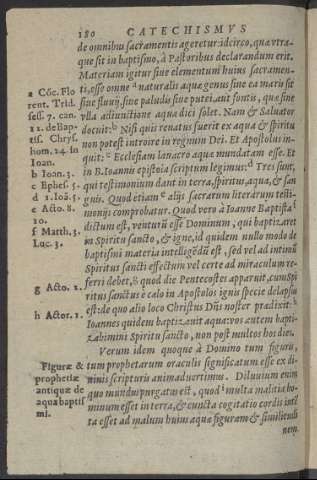 180 CATECHISMVS
de omnibus sacramentis ageretur: idcirco, quæ vtra-
que sit in baptismo, à Pastoribus declarandum erit.
Materiam igitur siue elementum huius sacramen-
ti, esse omne ª naturalis aquæ genus siue ea maris sit
siue fluuij, siue paludis siue putei, aut fontis, quæ sine
vlla adiunctione aqua dici solet. Nam & Saluator
docuit: ᵇ Nisi quis renatus fuerit ex aqua & spiritu
non potest introire in regnum Dei. Et Apostolus in-
quit: ᶜ Ecclesiam lauacro aquæ mundatam esse. Et
in B. Ioannis epistola scriptum legimus: ᵈ Tres sunt,
qui testimonium dant in terra, spiritus, aqua, & san
guis. Quod etiam ᵉ alijs sacrarum literarum testi-
monijs comprobatur. Quod verò à Ioanne Baptista ᶠ
dictum est, venturũ esse Dominum, qui baptizaret
in Spiritu sancto, & igne, id quidem nullo modo de
baptismi materia intelligẽdũ est, sed vel ad intimũ
Spiritus sancti effectum vel certe ad miraculum re-
ferri debet, ᵍ quod die Pentecostes apparuit, cum Spi
ritus sanctus è cælo in Apostolos ignis specie delapsus
est: de quo alio loco Christus Dñs noster prædixit: ʰ
Ioannes quidem baptizauit aqua: vos autem bapti-
zabimini Spiritu sancto, non post multos hos dies.
Verum idem quoque à Domino tum figuris,
tum prophetarum oraculis significatum esse ex di-
uinis scripturis animaduertimus. Diluuium enim
quo mundus purgatus est, quod ⁱ multa malitia ho-
minum esset in terra, & cuncta cogitatio cordis inté
ta esset ad malum huius aquæ figuram & similitudi
nem
a Cõc. Flo
rent. Trid.
sess. 7. can.
2. de Bap-
tis. Chrys.
hom. 24. in
Ioan.
b Ioan. 3.
c Ephes. 5.
d 1. Ioã. 5.
e Acto. 8.
10.
f Matth. 3.
Luc. 3.
g Acto. 2.
h Actor. 1.
Figuræ &
prophetiæ
antiquæ de
aqua baptis
mi.